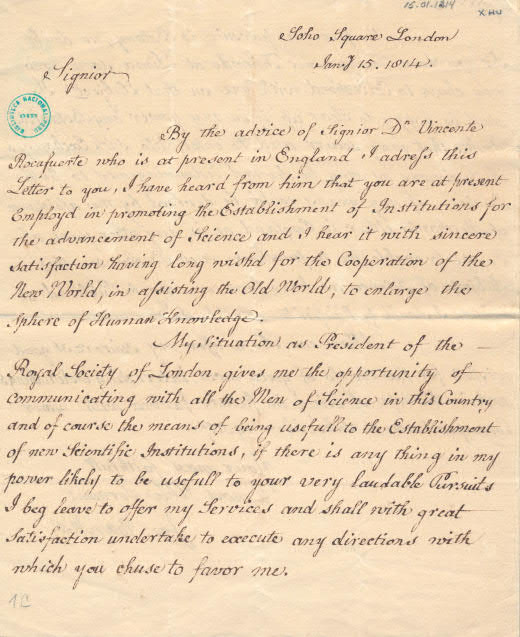 15.01.1814
XHU
Soho Square London
Jany 15. 1814.
Signior
BIBLIOTECA NACIONAL
By the advice of Signior Dn Vincente
Rocafuerte who is at present in England I adress this
Letter to you, I have heard from him that you are at present
Employd in promoting the Establishment of Institutions for
the advancement of Science and I hear it with sincere
satisfaction having long wishd for the Cooperation of the
New World, in assisting the Old World, to enlarge the
Sphere of Human Knowledge.
My situation as President of the
Royal Society of London gives me the opportunity of
communicating with all the Men of Science in this Country
and of course the means of being usefull to the Establishment
of new Scientific Institutions, if there is any thing in my
power likely to be usefull to your very laudable Pursuits
I beg leave to offer my Services and shall with great
satisfaction undertake to execute any directions with
which you chuse to favor me.